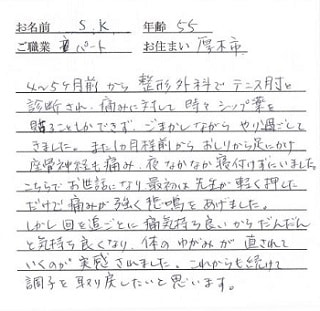 お名前 S.K. 年齢 55
ご職業 パート お住まい 厚木市
4〜5ヶ月前から整形外科でテニス肘と
診断され、痛みに対して時々シップ薬を
貼ることしかできず、ごまかしながらやり過ごして
きました。また1か月程前からおしりから足にかけ
座骨神経も痛み、夜なかなか寝付けずにいました
こちらでお世話になり最初は先生が軽く押した
だけで痛みが強く悲鳴をあげました。
しかし回を追ごとに痛気持ち良いからだんだん
と気持ち良くなり、体のゆがみが直されて
いくのが実感されました。これからも続けて
調子を取り戻したいと思います。